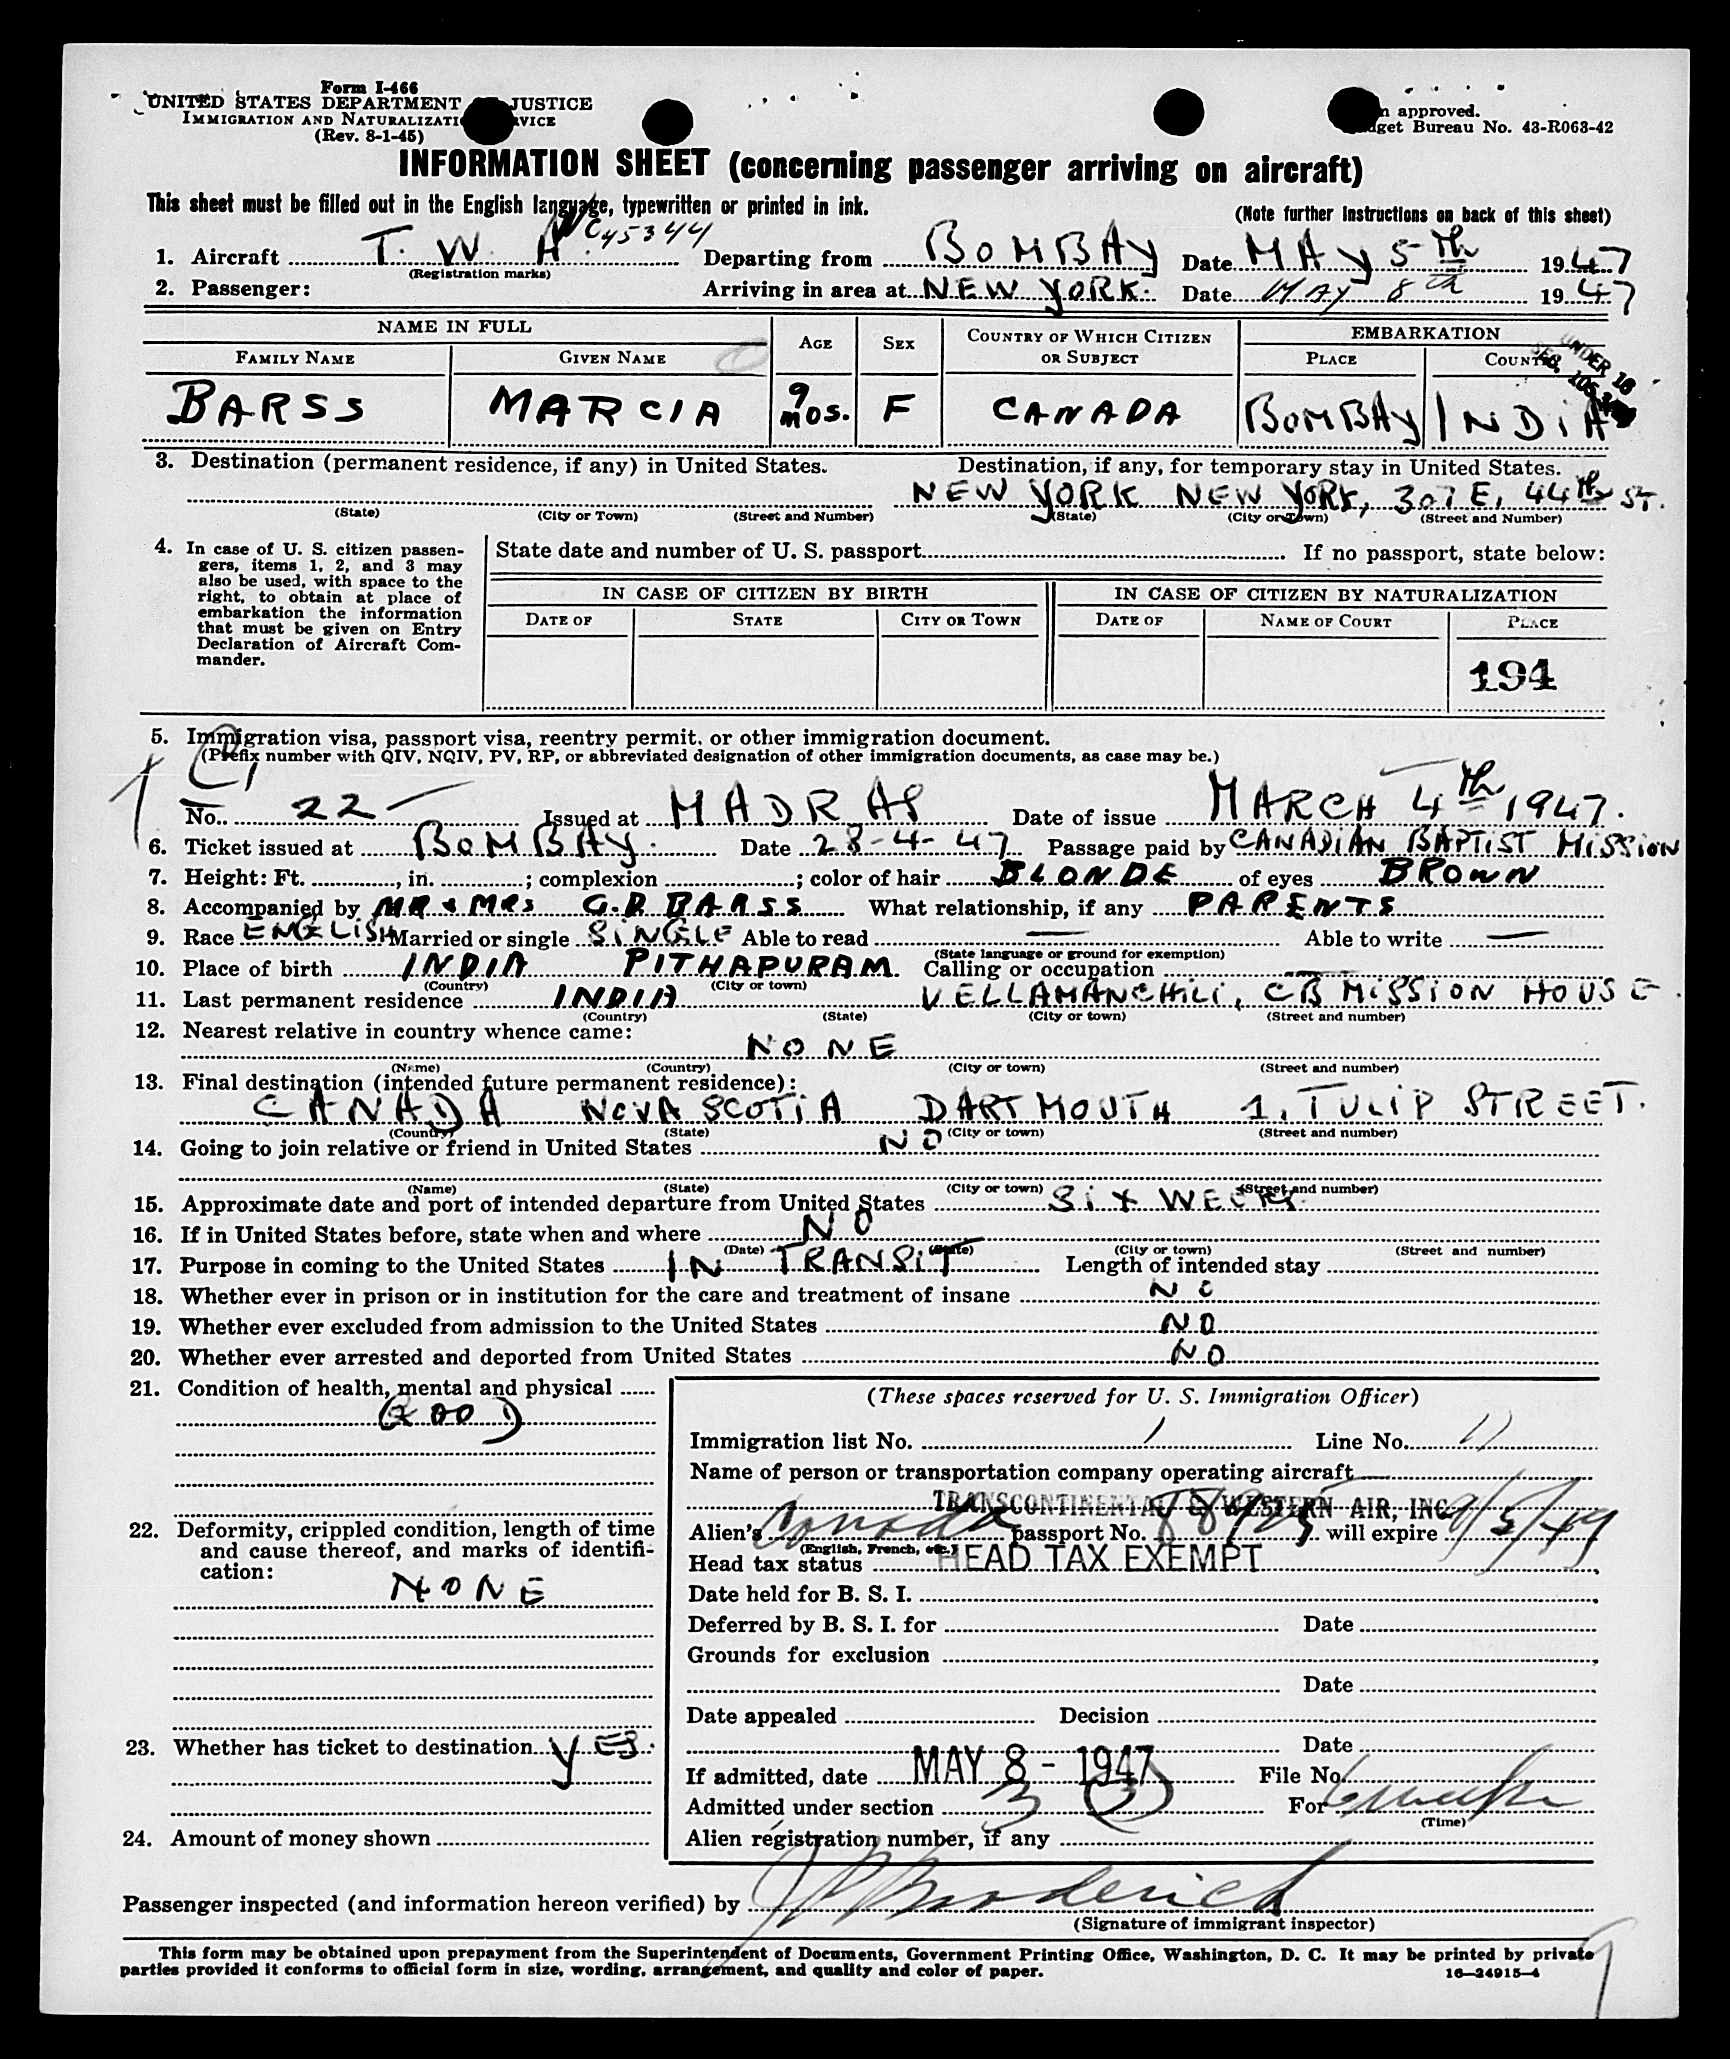 Form I-466
UNITED STATES DEPARTMENT JUSTICE
IMMIGRATION AND NATURALIZATI VICE
(Rev. 8-1-45)
approved.
get Bureau No. 43-R063-42
INFORMATION SHEET (concerning passenger arriving on aircraft)
This sheet must be filled out in the English language, typewritten or printed in ink.
(Note further instructions on back of this sheet)
1. Aircraft T. W. A. NC 45344 Departing from BOMBAY Date MAY 5th 1947
(Registration marks)
2. Passenger: Arriving in area at NEW YORK. Date MAY 8th 1947
NAME IN FULL AGE SEX COUNTRY OF WHICH CITIZEN OR SUBJECT EMBARKATION
FAMILY NAME GIVEN NAME PLACE COUNTRY
UNDER 16
BARSS MARCIA 9 mos. F CANADA BOMBAY INDIA
3. Destination (permanent residence, if any) in United States. Destination, if any, for temporary stay in United States.
NEW YORK NEW YORK, 307 E, 44th ST.
(State) (City or Town) (Street and Number) (State) (City or Town) (Street and Number)
4. In case of U. S. citizen passen-
gers, items 1, 2, and 3 may
also be used, with space to the
right, to obtain at place of
embarkation the information
that must be given on Entry
Declaration of Aircraft Com-
mander.
State date and number of U. S. passport If no passport, state below:
IN CASE OF CITIZEN BY BIRTH IN CASE OF CITIZEN BY NATURALIZATION
DATE OF STATE CITY OR TOWN DATE OF NAME OF COURT PLACE
194
5. Immigration visa, passport visa, reentry permit, or other immigration document.
(Prefix number with QIV, NQIV, PV, RP, or abbreviated designation of other immigration documents, as case may be.)
No. 22 Issued at MADRAS Date of issue MARCH 4th 1947.
6. Ticket issued at BOMBAY. Date 28-4-47 Passage paid by CANADIAN BAPTIST MISSION
7. Height: Ft. , in. ; complexion ; color of hair BLONDE of eyes BROWN
8. Accompanied by MR & MRS G.D BARSS What relationship, if any PARENTS
9. Race ENGLISH Married or single SINGLE Able to read — Able to write —
(State language or ground for exemption)
10. Place of birth INDIA PITHAPURAM. Calling or occupation —
(Country) (City or town)
11. Last permanent residence INDIA VELLAMANCHILI, CB MISSION HOUSE.
(Country) (State) (City or town) (Street and number)
12. Nearest relative in country whence came:
NONE
(Name) (Country) (City or town) (Street and number)
13. Final destination (intended future permanent residence):
CANADA NOVA SCOTIA DARTMOUTH 1. TULIP STREET.
(Country) (State) (City or town) (Street and number)
14. Going to join relative or friend in United States NO
(Name) (State) (City or town) (Street and number)
15. Approximate date and port of intended departure from United States SIX WEEKS.
16. If in United States before, state when and where NO
(Date) (State) (City or town) (Street and number)
17. Purpose in coming to the United States IN TRANSIT Length of intended stay
18. Whether ever in prison or in institution for the care and treatment of insane NO
19. Whether ever excluded from admission to the United States NO
20. Whether ever arrested and deported from United States NO
21. Condition of health, mental and physical
GOOD
22. Deformity, crippled condition, length of time
and cause thereof, and marks of identifi-
cation:
NONE
23. Whether has ticket to destination YES.
24. Amount of money shown
(These spaces reserved for U. S. Immigration Officer)
Immigration list No. 1 Line No. 11
Name of person or transportation company operating aircraft
TRANSCONTINENTAL & WESTERN AIR, INC.
Alien's Canada passport No. will expire 9/5/49
(English, French, etc.)
Head tax status HEAD TAX EXEMPT
Date held for B. S. I.
Deferred by B. S. I. for Date
Grounds for exclusion
Date
Date appealed Decision
Date
If admitted, date MAY 8 - 1947 File No.
Admitted under section 3 (3) For
(Time)
Alien registration number, if any
Passenger inspected (and information hereon verified) by J Broderick
(Signature of immigrant inspector)
This form may be obtained upon prepayment from the Superintendent of Documents, Government Printing Office, Washington, D. C. It may be printed by private
parties provided it conforms to official form in size, wording, arrangement, and quality and color of paper.
16—24915-4